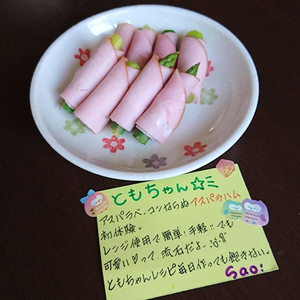 ともちゃん☆ミ
アスパラベーコンならぬアスパラハム
初体験。
レンジ使用で簡単!手軽!!でも
可愛いって、流石だよ
ともちゃんレシピ毎日作っても飽きない。
Sao!